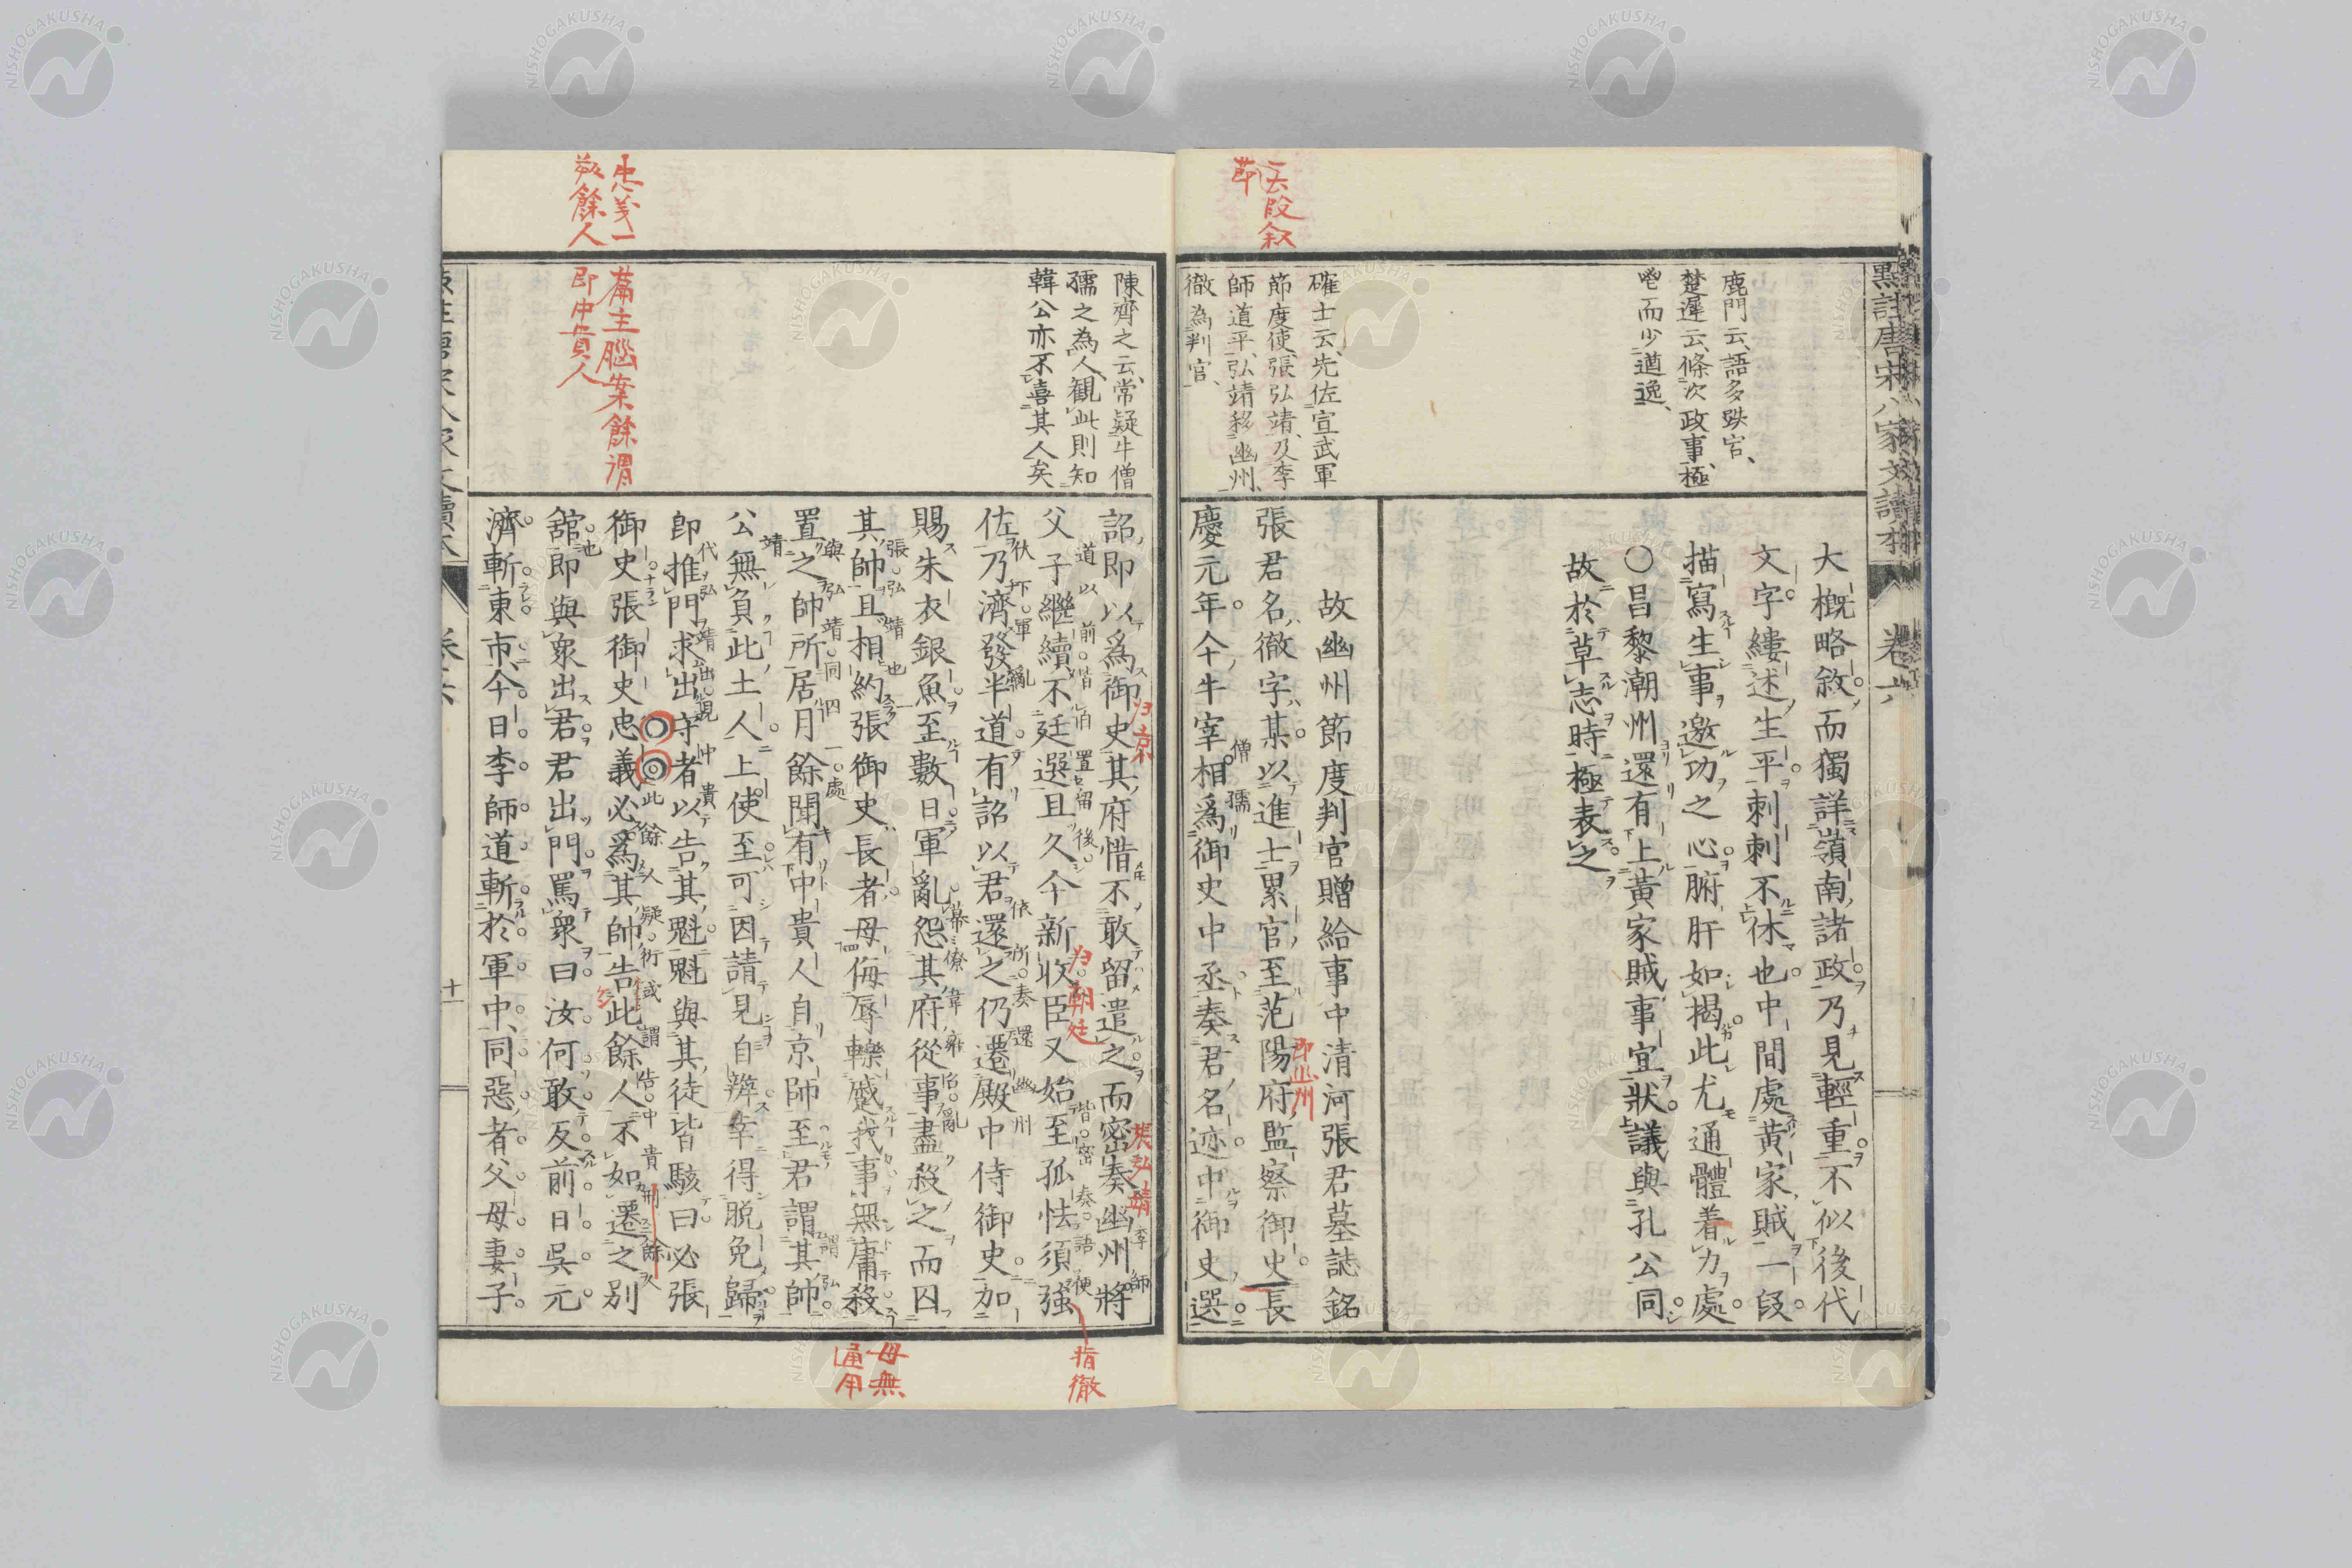 三段叙
節
鹿門云、語多跌宕、
楚遲云、條次政事、極
覺而少遒逸、
確士云、先佐宣武軍
節度使張弘靖、及李
師道平、弘靖移幽州、
徹為判官、
大概略敘而獨詳嶺南諸政乃見輕重不似後代
文字縷述生平刺刺不休也中間處黃家賊一段
描寫生事邀功之心腑肝如揭此尤通體着力處
○昌黎潮州還有上黃家賊事宜狀議與孔公同
故於草志時極表之
故幽州節度判官贈給事中清河張君墓誌銘
張君名徹字某以進士累官至范陽府監察御史長
慶元年今牛宰相爲御史中丞奏君名迹中御史選
僧孺
即幽州
卷六
陳齊之云、常疑牛僧
孺之為人、観此則知
韓公亦不喜其人矣
忠義一
篇主腦案餘謂
餘人
即中貴人
詔即以爲御史其府惜不敢留遣之而密奏幽州將
父子繼續不廷選且久今新收臣又始至孤怯須強
佐乃濟發半道有詔以君還之仍遷殿中侍御史加
賜朱衣銀魚至數日軍亂怨其府從事盡殺之而囚
其帥且相約張御史長者毋侮辱轢蹙我事無庸殺
置之帥所居月餘聞有中貴人自京師至君謂其帥
公無負此土人上使至可因請見自辨幸得脫免歸
即推門求出守者以告其魁魁與其徒皆駭曰必張
御史張御史忠義必爲其帥告此餘人不如遷之別
舘即與衆出君君出門罵衆曰汝何敢反前日吳元
濟斬東市今日李師道斬於軍中同惡者父母妻子
歸京
歸朝廷
張弘靖
指徹
毋無
通用
十一